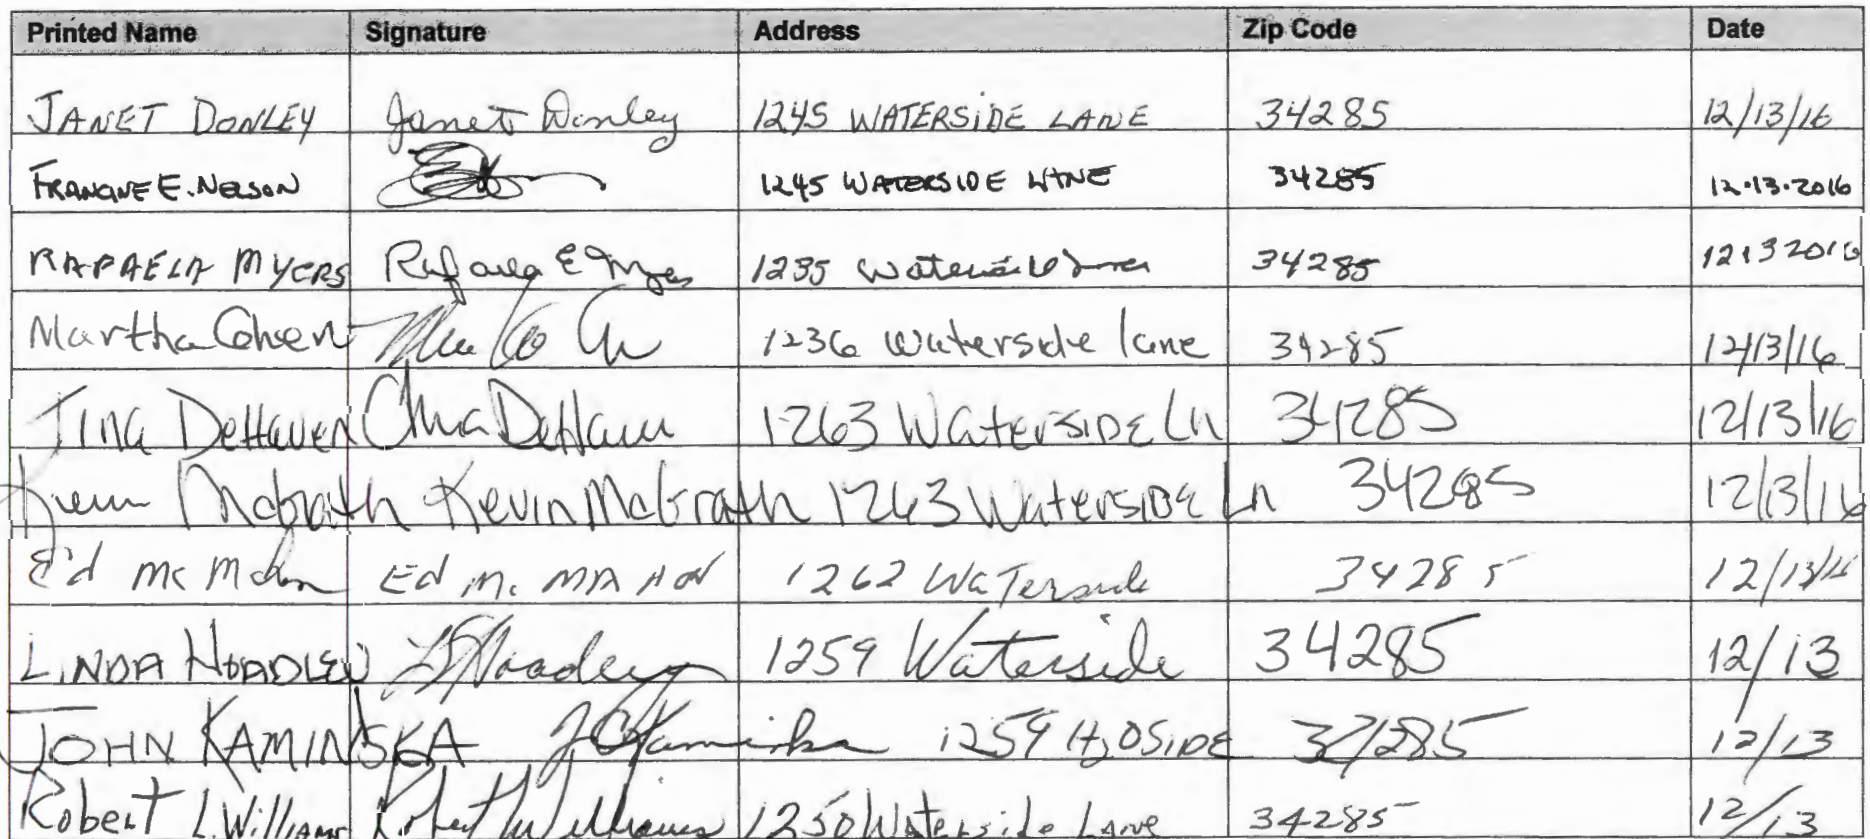 Printed Name Signature Address Zip Code Date
JANET DONLEY Janet Donley 1245 WATERSIDE LANE 34285 12/13/16
FRANCINE E. NELSON 1245 WATERSIDE LANE 34285 12.13.2016
RAPAELA MYERS Rafaela E Myers 1235 Waterside Lane 34285 12 13 2016
Martha Cohen 1236 Waterside lane 34285 12/13/16
Tina DeHaven Tina DeHaven 1263 WatersIDE Ln 34285 12/13/16
Kevin McGrath Kevin McGrath 1263 WatersIDE Ln 34285 12/13/16
Ed McMahon Ed Mc MAHON 1262 Waterside 34285 12/13/16
LINDA HOADLEY Hoadley 1259 Waterside 34285 12/13
JOHN KAMINSKA J Kaminska 1259 H2OSIDE 34285 12/13
Robert L. Williams Robert Williams 1250 Waterside Lane 34285 12/13